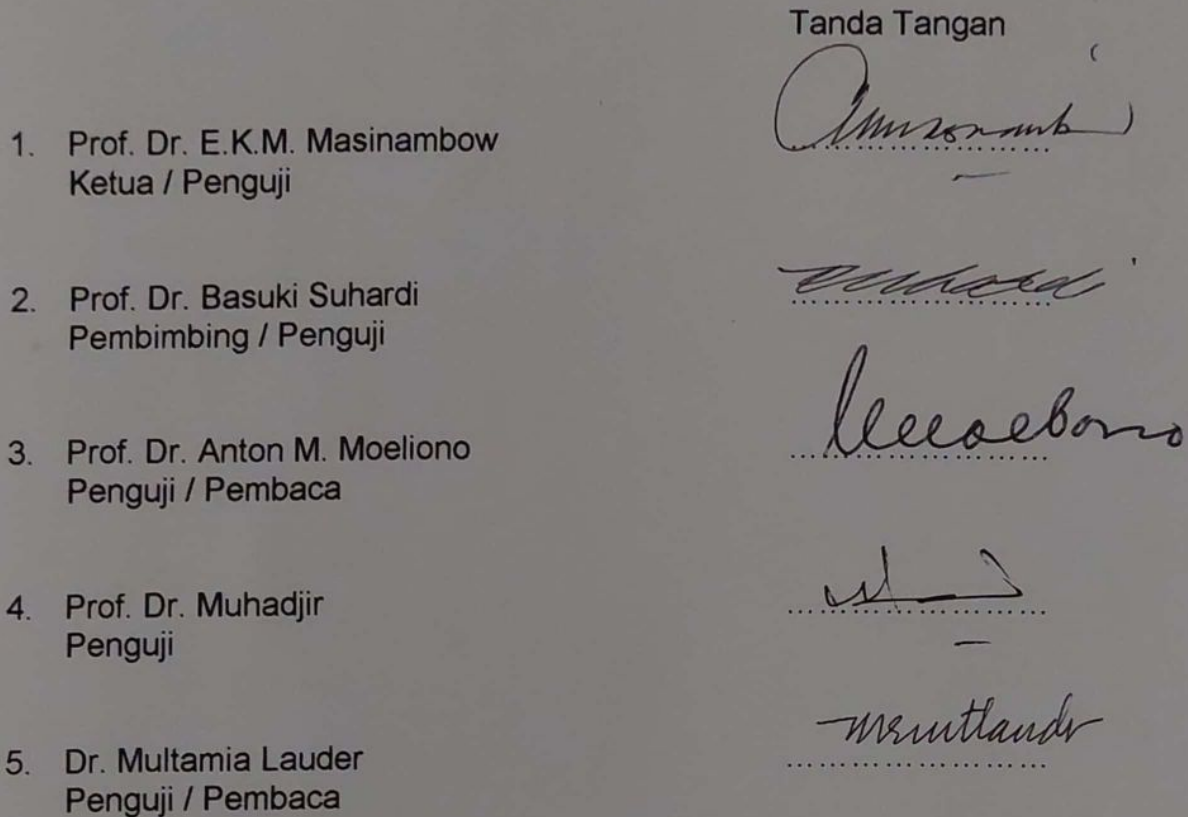 Tanda Tangan
1. Prof. Dr. E.K.M. Masinambow
Ketua / Penguji
2. Prof. Dr. Basuki Suhardi
Pembimbing / Penguji
3. Prof. Dr. Anton M. Moeliono
Penguji / Pembaca
4. Prof. Dr. Muhadjir
Penguji
5. Dr. Multamia Lauder
Penguji / Pembaca